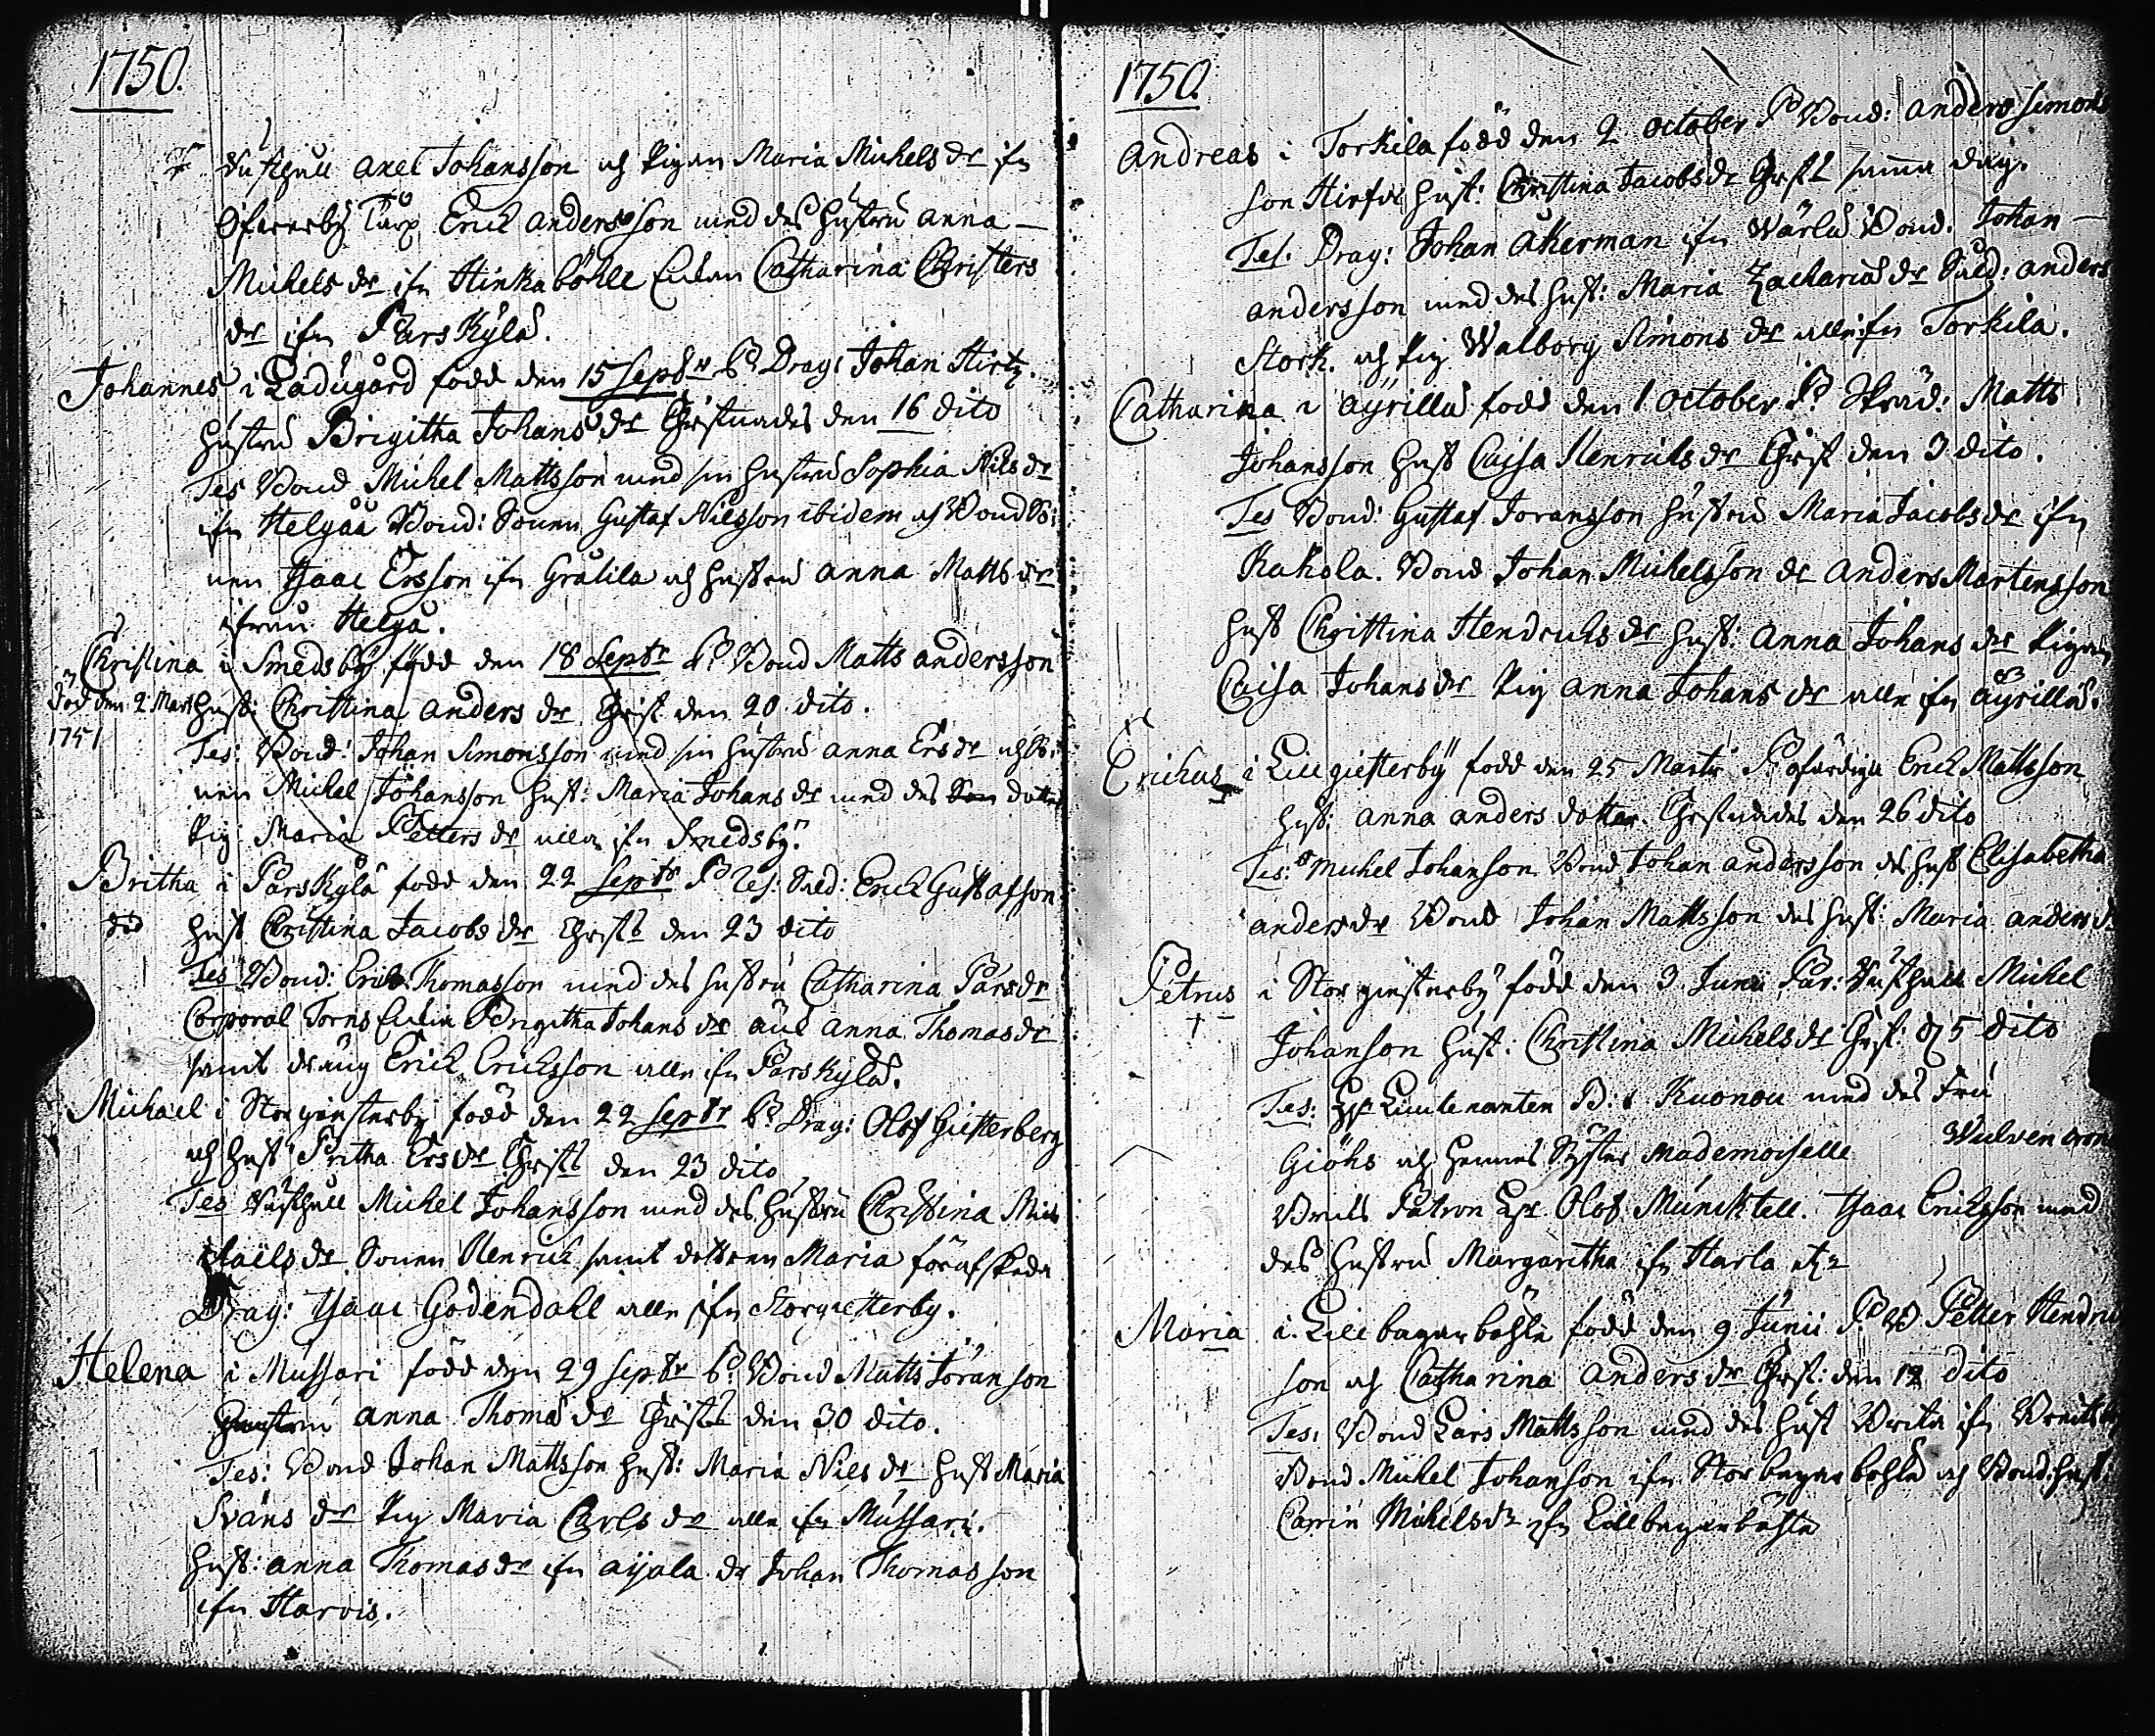 1750.
Rusthåll Axel Johansson och Pigan Maria Michels dr ifrn
Öfverby Torp Erich Andersson med des hustru Anna
Michels dr ifrn Hinkaböhle Enkan Catharina Christers
dr ifrn Pärskylä.
Johannes i Ladugård född den 15 Septbr Pr Drag: Johan Hirtz.
hustru Brigitha Johans dr Christnades den 16 dito
Tes Bond Michel Mattsson med sin hustru Sophia Nils dr
ifrn Helgåå Bond: Sonen Gustaf Nilsson ibidem och Bond So
nen Isaac Ersson ifrn Gråtila och hustru Anna Matts dr
ifrån Helgå.
Christina i Smedsby född den 18 Septr Pr Bond Matts Andersson
död den 2 Mart hust: Christina Anders dr Christ den 20 dito.
1751
Tes: Bond: Johan Simonsson med sin hustru Anna Ers dr och So
nen Michel Johansson hust: Maria Johans dr med des dotter
Pig: Maria Petters dr alla ifrn Smedsby.
Britha i Pärskylä född den 22 Septr Pr Res: Sold: Erich Gustafson
död hust Christina Jacobs dr Christ den 23 dito
Tes Bond: Erich Thomasson med des hustru Catharina Pärs dr
Corporal Torns Enkia Brigitha Johans dr Anna Thomas dr
samt dräng Erich Ericksson alla ifrn Pärskylä.
Michael i Storgiesterby född den 22 Septr Pr Drag: Olof Giesterberg
och hust Britha Ers dr Christ den 23 dito
Tes Rusthåll Michel Johansson med des hustru Christina Mic
haels dr Sonen Henrich samt dottren Maria förafskeda
Drag: Isaac Godendahl alla ifrn Storgiesterby.
Helena i Mussari född den 29 Septr Pr Bond Matts Jöranson
hustru Anna Thomas dr Christ den 30 dito.
Tes: Bond Johan Mattsson hust: Maria Nils dr hust Maria
Sväns dr Pig Maria Carls dr alla ifrn Mussari.
hust: Anna Thomas dr ifrn Aijala dr Johan Thomasson
ifrn Harvis.
1750.
Andreas i Torkila född den 2 October Pr Bond: Anders Simons
son hust: Christina Jacobs dr Christ samma dag.
Tes. Drag: Johan Åkerman ifrn Wärlu Bond. Johan
Andersson med des hust: Maria Zacharias dr Sold: Anders
Stork. och Pig Walborg Simons dr alla ifrn Torkila.
Catharina i Äyrillä född den 1 October Pr Skräd: Matts
Johansson hust Caisa Henrichs dr Christ den 3 dito.
Tes Bond: Gustaf Joransson hustru Maria Jacobs dr ifrn
Kukola. Bond Johan Michelsson dr Anders Martensson
hust Christina Hendrichs dr hust: Anna Johans dr Pigan
Caisa Johans dr Pig Anna Johans dr alla ifrn Äyrillä.
Erichus i Lillgiesterby född den 25 Martii Pr ofärdiga Erich Mattsson
hust: Anna Anders dotter. Christnades den 26 dito
Tes: Michel Johanson Bond Johan Andersson des hust Elisabetha
Anders dr Bond Johan Mattsson des hust: Maria Anders dr
Petrus i Storgiesterby född den 3 Junii Par: Rusthåll Michel
†
Johanson hust: Christina Michels dr Christ: d 5 dito
Tes: Hr Lieutenanten B: Kuonou med des Fru
Giöhs och hennes Syster Mademoiselle Wulvencrona
Bruks Patron Hr Olof Muncktell. Isaac Erichsson med
des hustru Margaritha ifrn Harla etc
Maria i. Lillbagarböhle född den 9 Junii Pr B Petter Hendri
son och Catharina Anders dr Christ: den 12 dito
Tes: Bond Lars Mattsson med des hust Brita ifrn
Bond. Michel Johanson ifrn Storbagarböhle och Bond: hust:
Carin Michels dr ifrn Lillbagarböhle